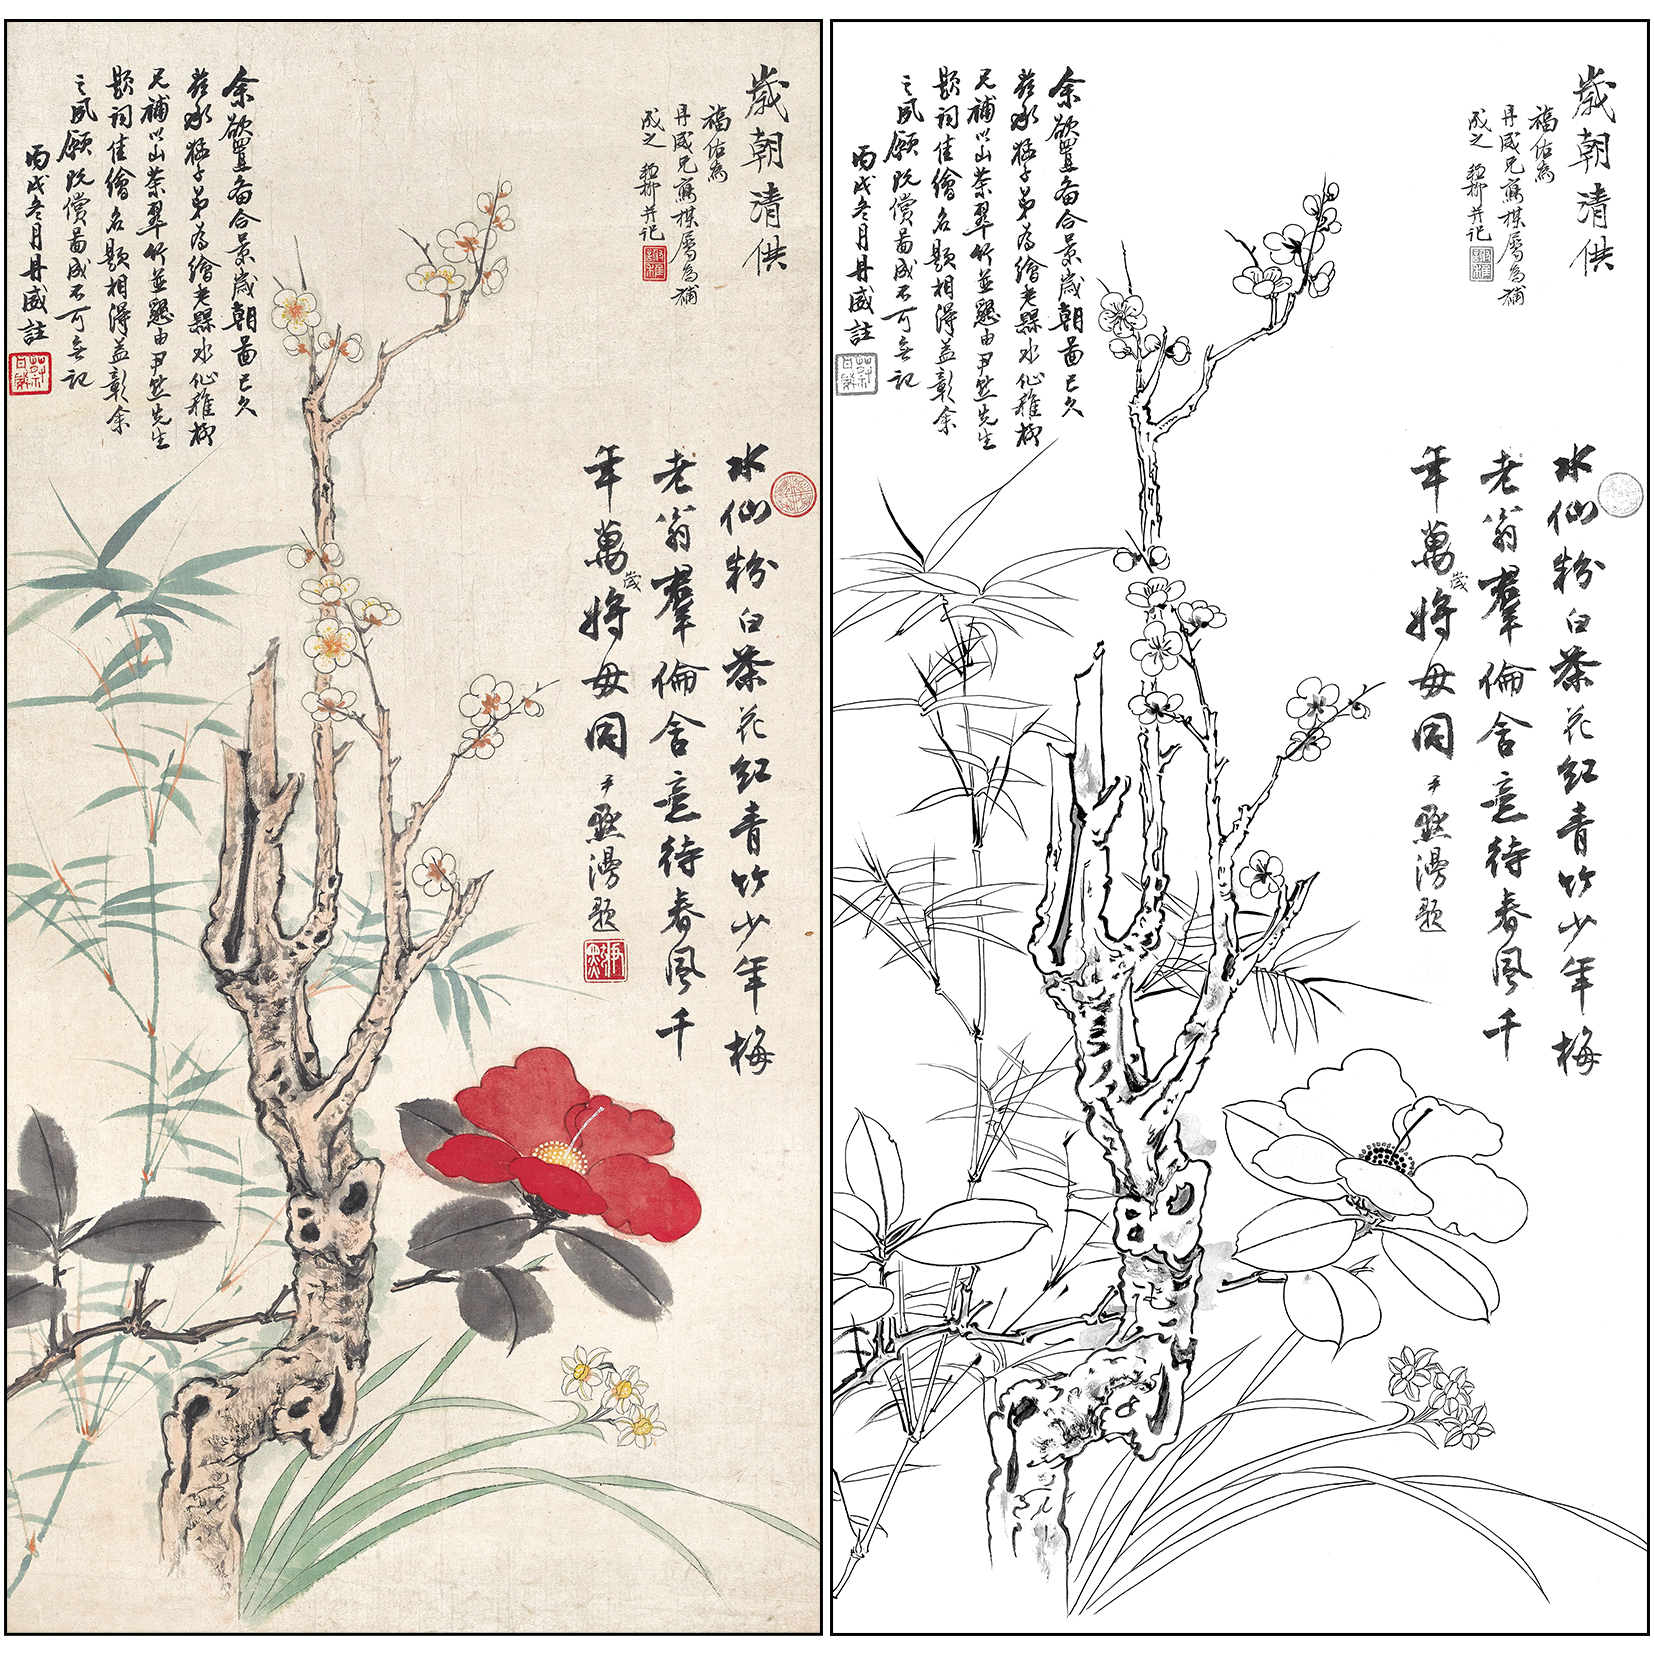 歲朝清供
福佑為
丹威兄寫楳屬為補
成之 稚柳并記
水仙粉白茶花紅青竹少年梅
老翁羣倫含意待春風千
年萬歲將毋同 尹默漫題
余欲置备合景歲朝啚已久
弟為繪老楳水仙稚柳
兄補以山茶翠竹並懇由尹默先生
題詞佳繪名題相得益彰余
之夙願既償啚成不可無記
丙戌冬月丹威註
歲朝清供
福佑為
丹威兄寫楳屬為補
成之 稚柳并記
水仙粉白茶花紅青竹少年梅
老翁羣倫含意待春風千
年萬歲將毋同 尹默漫題
余欲置备合景歲朝啚已久
弟為繪老楳水仙稚柳
兄補以山茶翠竹並懇由尹默先生
題詞佳繪名題相得益彰余
之夙願既償啚成不可無記
丙戌冬月丹威註